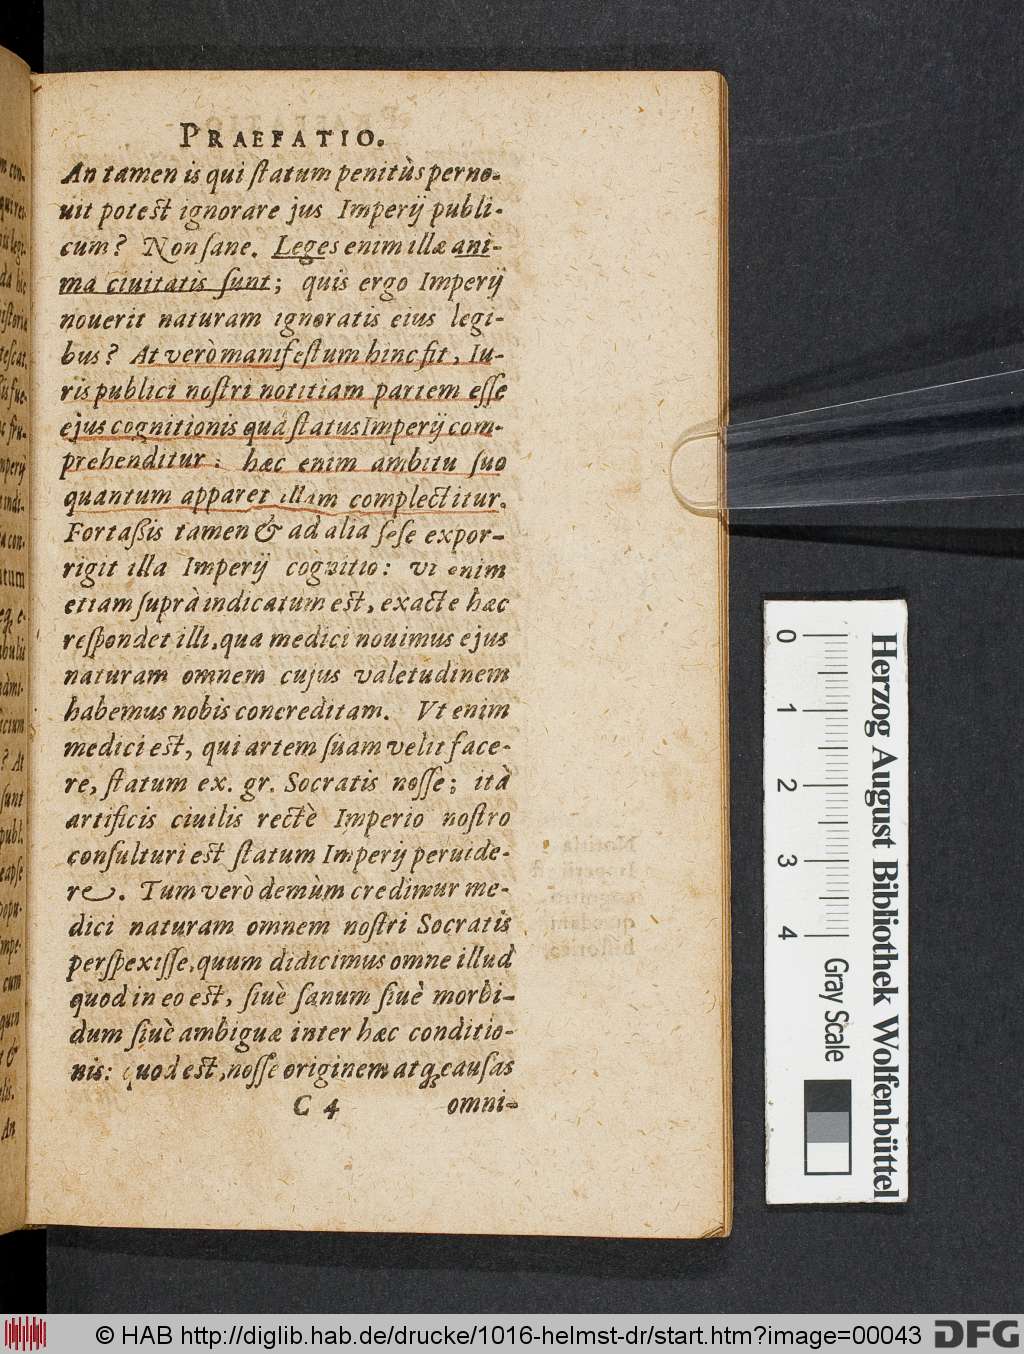 PRAEFATIO.
An tamen is qui ſtatum penitùs perno-
uit poteſt ignorare jus Imperij publi-
cum? Non ſane. Leges enim illæ ani-
ma ciuitatis ſunt; quis ergo Imperij
nouerit naturam ignoratis eius legi-
bus? At verò manifeſtum hinc fit, Iu-
ris publici noſtri notitiam partem eſſe
ejus cognitionis quâ ſtatus Imperij com-
prehenditur: hæc enim ambitu ſuo
quantum apparet illam complectitur.
Fortaßis tamen & ad alia ſeſe expor-
rigit illa Imperij cognitio: vt enim
etiam ſuprà indicatum eſt, exacte hæc
reſpondet illi, qua medici nouimus ejus
naturam omnem cujus valetudinem
habemus nobis concreditam. Vt enim
medici eſt, qui artem ſuam velit face-
re, ſtatum ex. gr. Socratis noſſe; ità
artificis ciuilis rectè Imperio noſtro
conſulturi eſt ſtatum Imperij peruide-
re. Tum verò demùm credimur me-
dici naturam omnem noſtri Socratis
perſpexiſſe, quum didicimus omne illud
quod in eo eſt, ſiuè ſanum ſiuè morbi-
dum ſiuè ambiguæ inter hæc conditio-
nis: quod eſt, noſſe originem atq; cauſas
C 4 omni-
0 1 2 3 4
Gray Scale
Herzog August Bibliothek Wolfenbüttel
© HAB http://diglib.hab.de/drucke/1016-helmst-dr/start.htm?image=00043
DFG